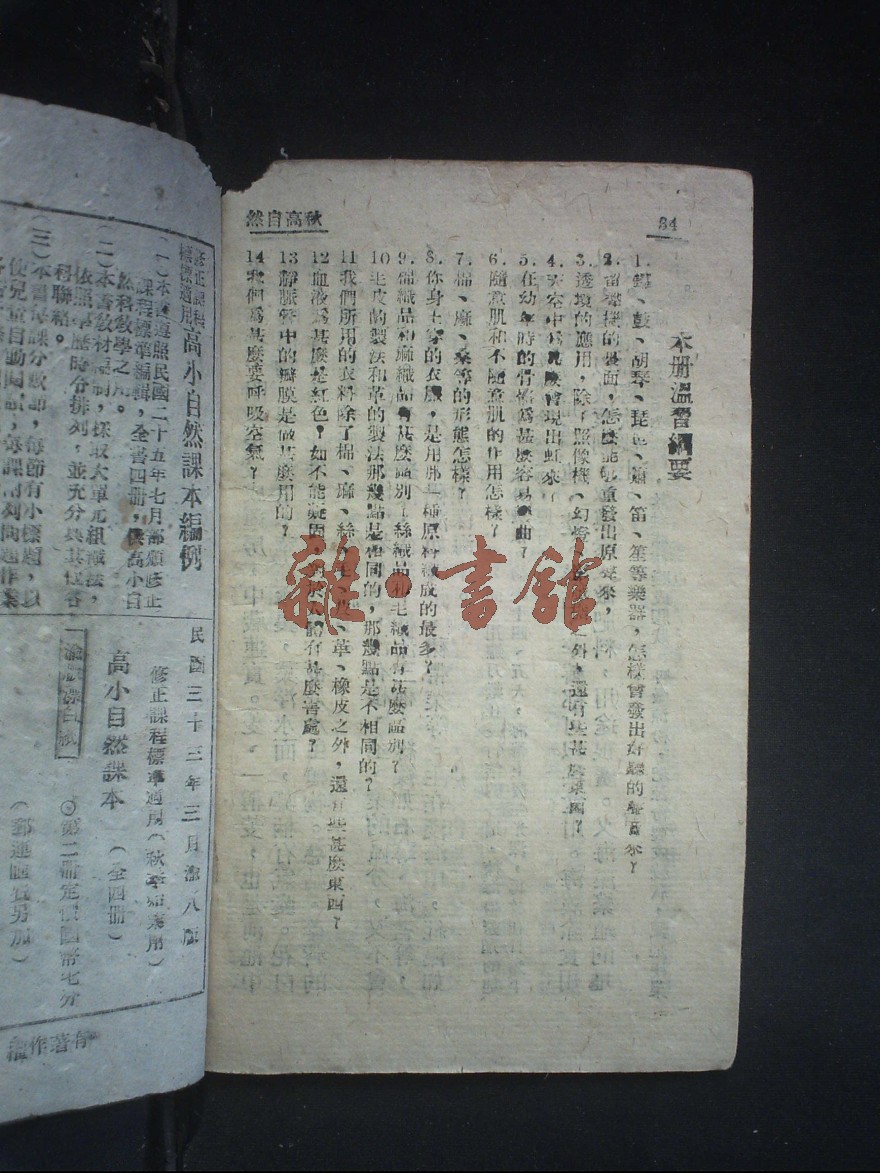 34
秋高自然
本册溫習綱要
1. 鑼、鼓、胡琴、琵琶、簫、笛、笙等樂器,怎樣會發出好聽的聲音來?
2. 留聲機的裏面,怎麼能够重發出原聲來,
3. 透鏡的應用,除了照像機、幻燈、之外,還有些甚麼東西?
4. 天空中爲甚麼會現出虹來?
5. 在幼年時的骨骼爲甚麼容易曲?
6. 隨意肌和不隨意肌的作用怎樣?
7. 棉、麻、桑等的形態怎樣?
8. 你身上穿的衣服,是用那一種原料製成的最多?
9. 棉織品和麻織品有甚麼區別?絲織品和毛織品有甚麼區別?
10 生皮的製法和革的製法那幾點是相同的,那幾點是不相同的?
11 我們所用的衣料除了棉、麻、絲、毛、皮、革、橡皮之外,還有些甚麼東西?
12 血液爲甚麼是紅色?如不能凝固,對於人體有甚麼害處?
13 靜脈管中的瓣膜是做甚麼用的?
14 我們爲甚麼要呼吸空氣?
雜·書館
修正課程標準適用
高小自然課本編例
(一)本書遵照民國二十五年七月部頒修正
課程標準編輯,全書四册,供高小自
然科教學之用。
(二)本書教材編制,採取大單元組織法,
依照學歷時令排列,並充分與其他各
科聯絡。
(三)本書每課分數節,每節有小標題,以
使兒童自動閱讀,每課附列問題作業
民國三十三年三月滬八版
修正課程標準適用(秋季始業用)
高小自然課本(全四册)
第二册定價國幣
(郵運匯費另加)
有著作權